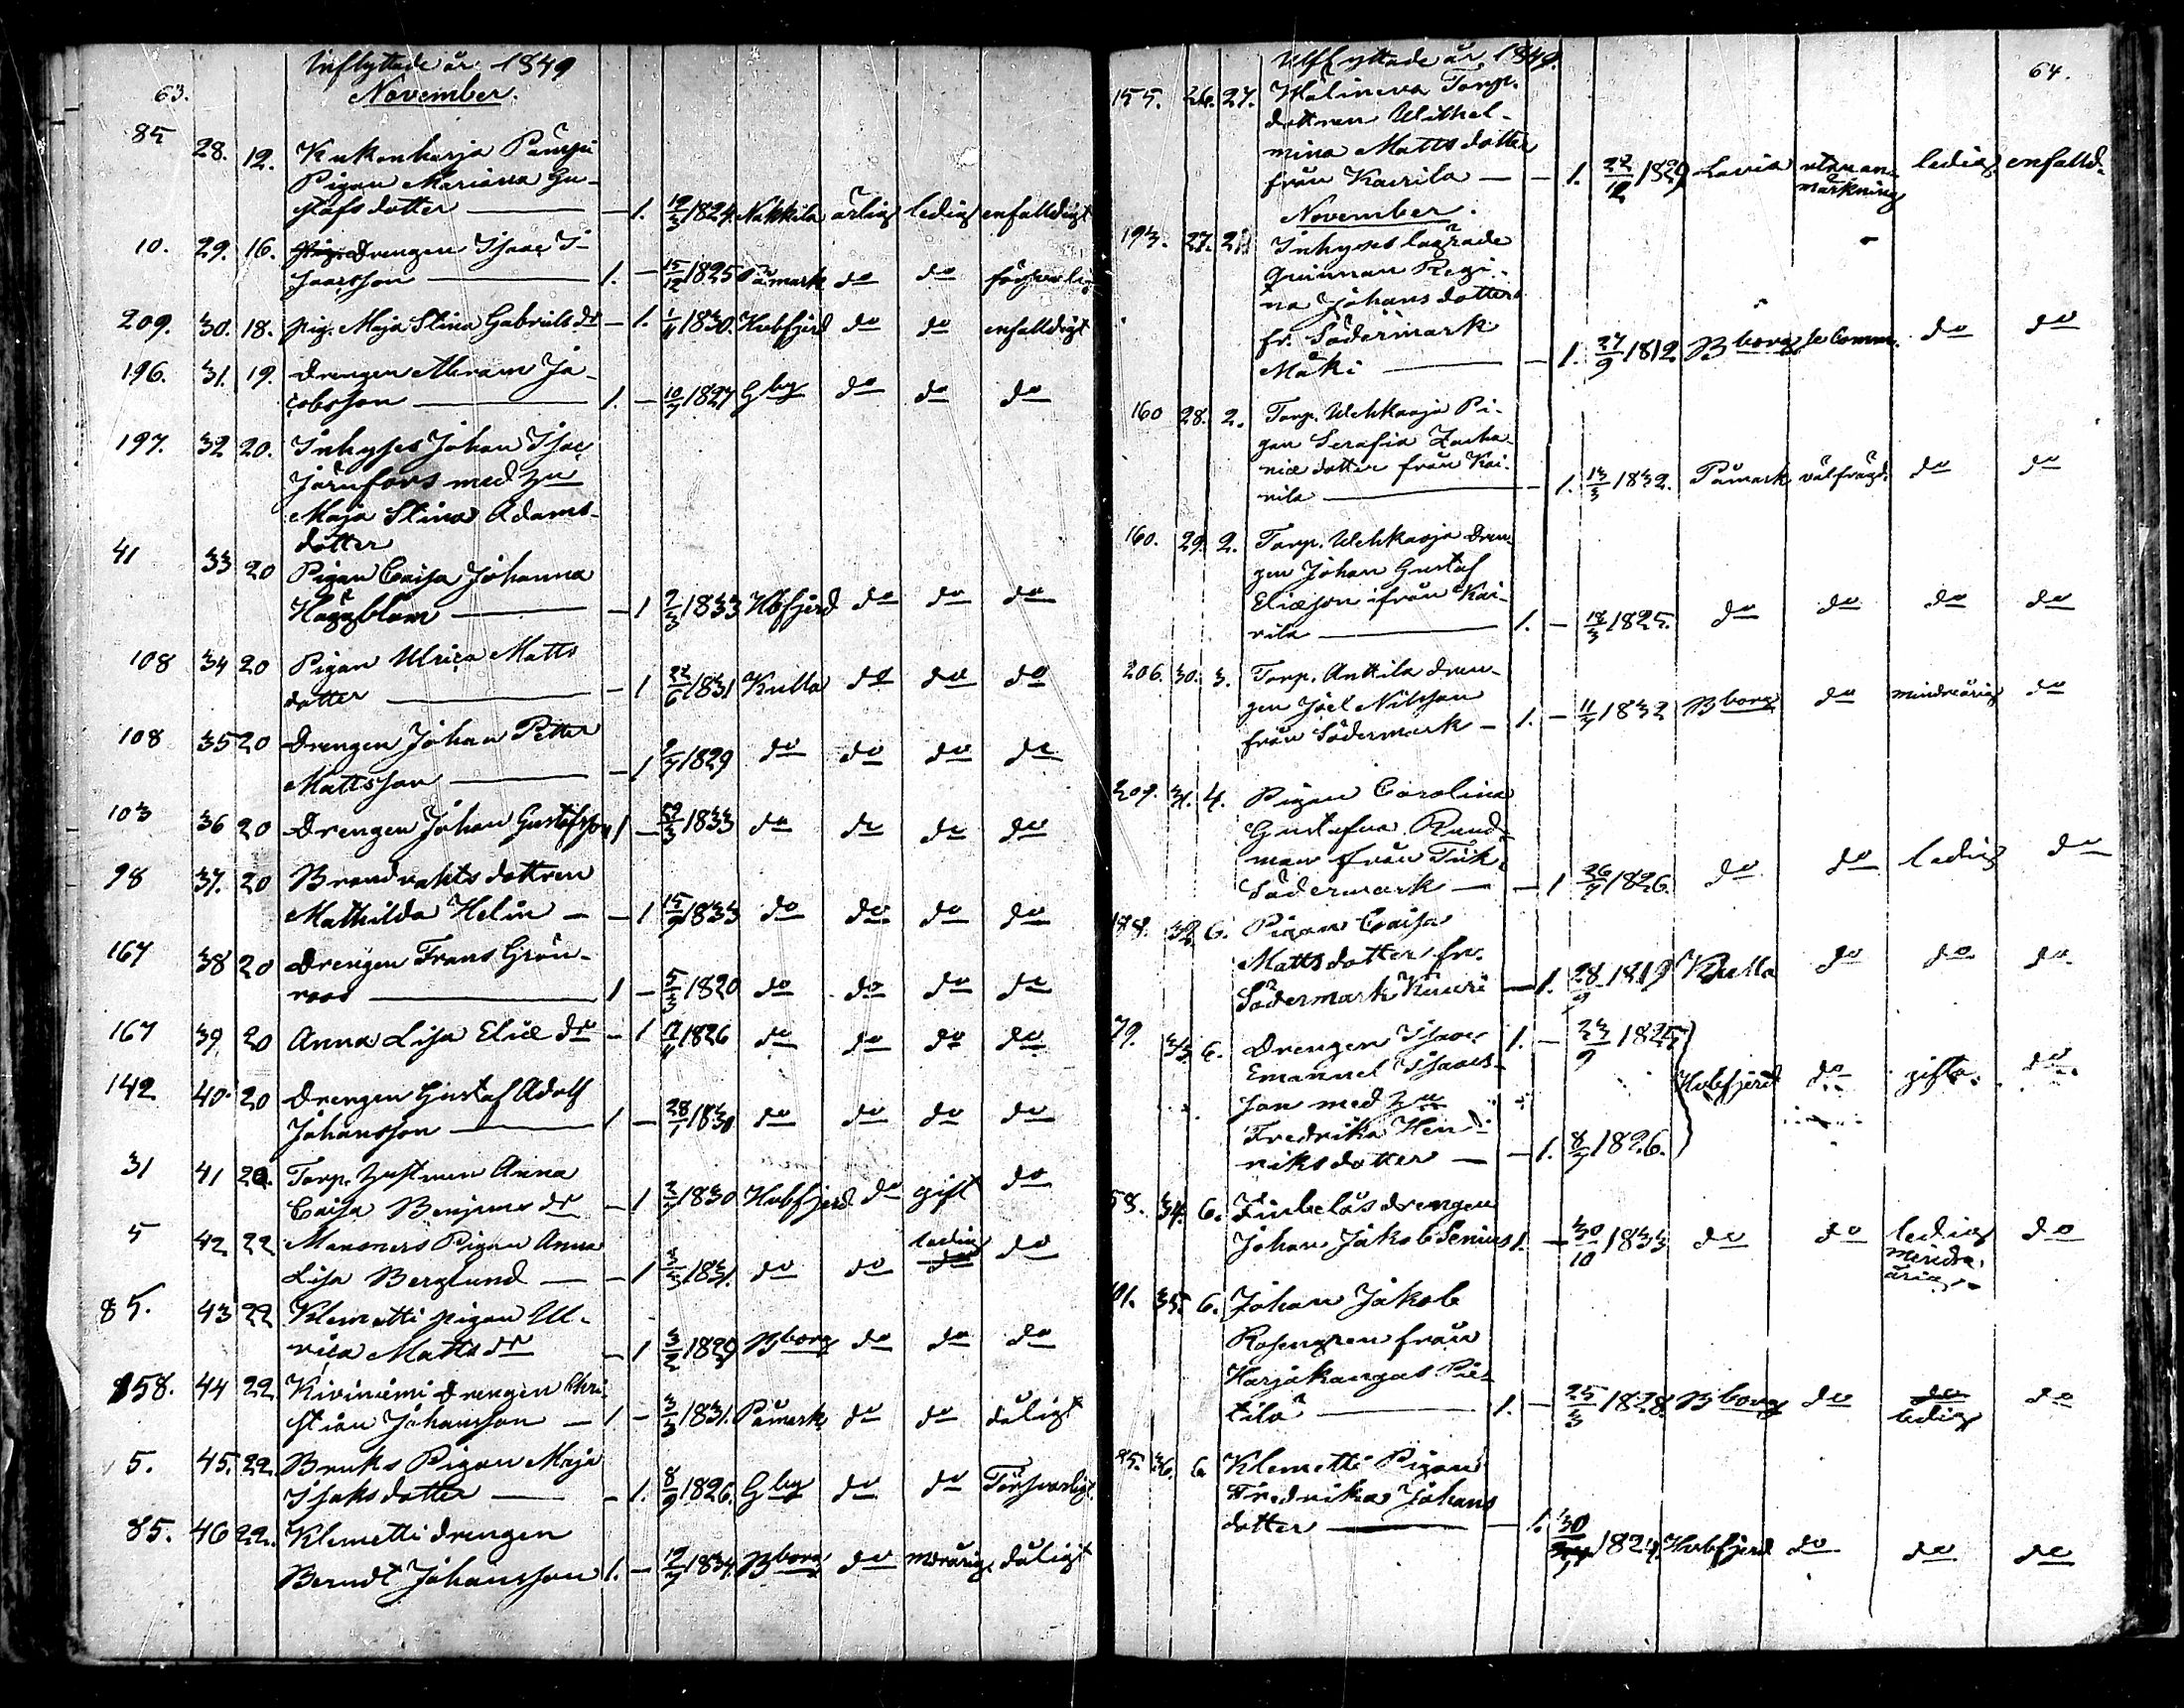 Inflyttade år 1849
63.
November.
85 28. 12. Kukonharja Pämpi
Pigan Mariana Gu-
stafs dotter — 1. 19/3 1824. Nakkila ärlig ledig enfalldigt
10. 29. 16. Drengen Isaac I-
saacsson — 1. — 15/12 1825 Påmark do do försvarlig
209. 30. 18. pig. Maja Stina Gabriels dr — 1. 1/11 1830. Hvbfjerd do do enfalldigt
196. 31. 19. Drengen Abram Ja-
cobsson — 1. — 10/7 1827 G by do do do
197. 32 20. Inhyses Johan Isac
Järnfors med hu
Maja Stina Adams-
dotter
41 33 20 Pigan Caisa Johanna
Häggblom — 1 7/3 1833 Hbfjerd do do do
108 34 20 Pigan Ulrica Matts
dotter — 1 22/6 1831 Kulla do do do
108 35 20 Drengen Johan Petter
Mattsson — 1 9/7 1829 do do do do
103 36 20 Drengen Johan Gustafsson 1 — 29/3 1833 do do do do
98 37. 20 Brandvakts dottren
Mathilda Helin — 1 15/9 1833 do do do do
167 38 20 Drengen Frans Grön-
roos — 1 — 5/3 1820 do do do do
167 39 20 Anna Lisa Eliæ dr — 1 17/11 1826 do do do do
142 40. 20 Drengen Gustaf Adolf
Johansson — 1 — 28/1 1830 do do do do
31 41 20. Torp. hustrun Anna
Caisa Benjims dr — 1 2/7 1830 Hvbfjerd do gift do
5 42 22 Masners Pigan Anna
Lisa Berglund — 1 3/3 1831. do do ledig do
85. 43 22 Klemetti pigan Ul-
rica Matts dr — 1 3/2 1829 Bborg do do do
158. 44 22. Kiviniemi Drengen Chri-
stian Johansson — 1 — 3/3 1831. Påmark do do dåligt
5. 45. 22. Bruks Pigan Maja
Isaks dotter — 1. 8/9 1826. G by do do Försvarligt
85. 46 22. Klemetti drengen
Berndt Johansson 1. — 19/7 1834. Bborg do mdrårig dåligt
Utflyttade år 1849.
64.
155. 26. 27. Wälineva Torp.
dottren Wilhel-
mina Matts dotter
från Kairila — 1. 27/12 1829 Lavia utan an-
märkning ledig enfalld.
November.
193. 27. 2. Inhyses lagrade
Quinnan Regi-
na Johans dotter
fr. Södermark
Mäki — 1. 27/9 1812 Bborg do do
160 28. 2. Torp. Uehkaoja Pi-
gan Serafia Zacha-
riæ dotter från Kai-
rila — 1. 13/3 1832. Påmark välfräjd. do do
160. 29. 2. Torp. Uehkaoja dren-
gen Johan Gustaf
Eliæson ifrån Kai-
rila — 1. — 18/3 1825. do do do do
206. 30. 3. Torp. Anttila dren-
gen Joel Nilsson
från Södermark — 1. — 11/7 1832 Bborg do minderårig do
209. 31. 4. Pigan Carolina
Gustafva Rund-
man från
Södermark — 1 26/7 1826. do do ledig do
188. 32. 6. Pigan Caisa
Matts dotter fr.
Södermark Kuuri — 1. 28/9 1819 Kulla do do do
79. 33 6. Drengen Isaac 1. — 23/9 1825
Emanuel Isaacs-
son med hu Hvbfjerd do gifta. do
Fredrika Hen-
riksdotter — 1. 8/7 1826.
58. 34. 6. Finbelås drengen
Johan Jakob Senius 1. — 30/10 1833 do do ledig do
mindre
årig.
101. 35. 6. Johan Jakob
Rosengren från
Harjakangas Piet-
tilä — 1. — 25/3 1828. Bborg do do do
ledig
85. 36. 6 Klemetti Pigan
Fredrika Johans
dotter — 1. 30/7 1824. Hvbfjerd do do do